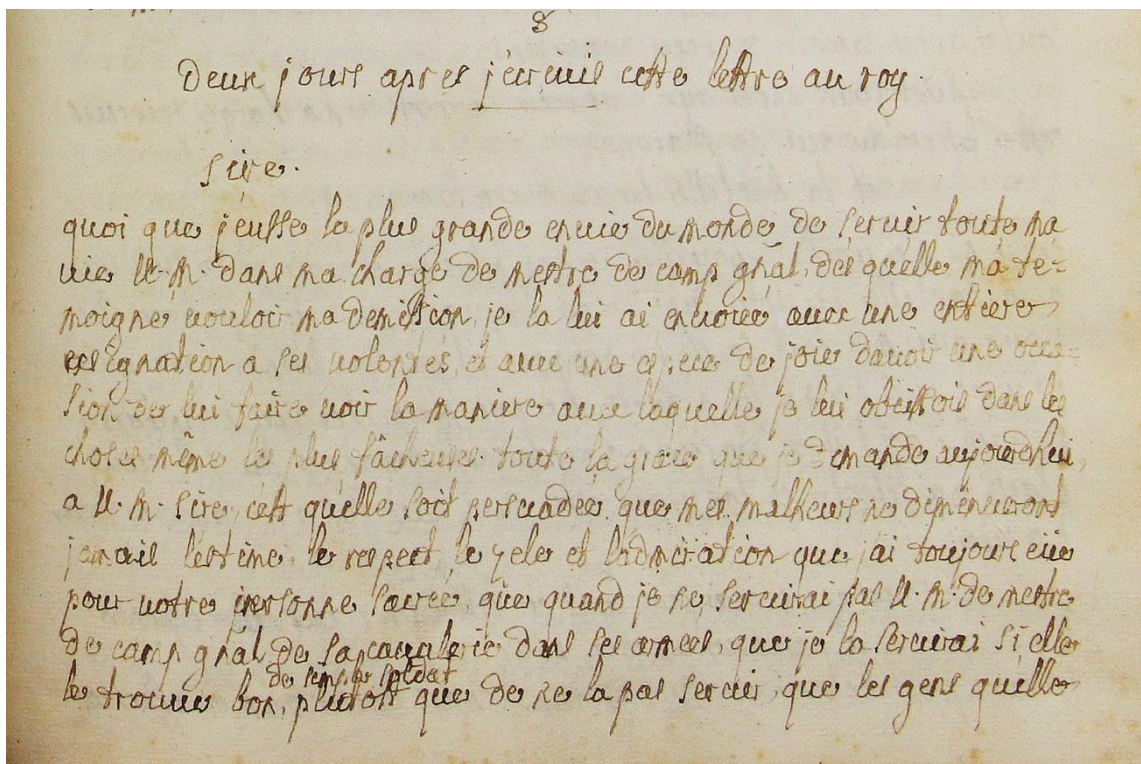 8
Deux jours apres j'écrivis cette lettre au roy.
Sire.
quoi que j'eusse la plus grande envie du monde de servir toute ma
vie V. M. dans ma charge de mestre de camp gñal, dés qu'elle m'a té=
moigné vouloir ma demission, je la lui ai envoiée avec une entiere
resignation a ses volontés, et avec une espece de joie d'avoir une occa=
sion de lui faire voir la maniere avec laquelle je lui obéissois dans les
choses même les plus fâcheuses. toute la grace que je demande aujourdhui,
a V. M. Sire, c'est qu'elle soit persuadée, que mes malheurs ne diminueront
jamais l'estime, le respect, le zele et l'admiration que j'ai toujours eüe
pour votre personne sacrée, que quand je ne servirai pas V. M. de mestre
de camp gñal de sa cavalerie dans ses armées, que je la servirai si elle
de simple soldat
le trouve bon, plutost que de ne la pas servir, que les gens qu'elle